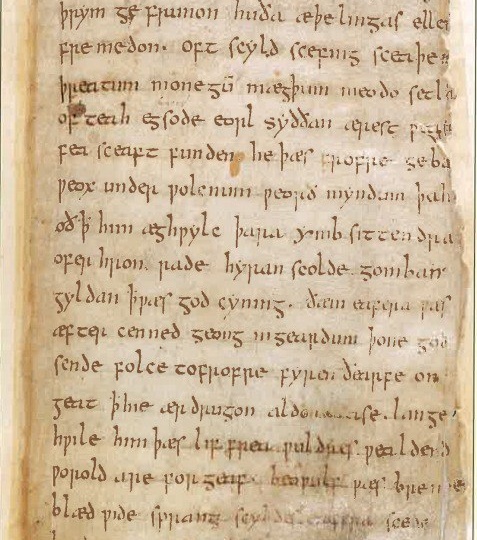 þrym ge frunon huða æþelingas elle
fremedon. oft scyld scefing sceaþen
þreatum monegū mægþum meodo setla
of teah egsode eorl syððan ærest
fea sceaft funden he þæs frofre geba
ƿeox under ƿolcnum ƿeorð myndum þah
oð ꝥ him æghƿylc þara ymb sittendra
ofer hron rade hyran scolde gomban
gyldan ꝥ ƿæs god cyning. ðæm eafera ƿæs
æfter cenned geong in geardum þone god
sende folce tofrofre fyren ðearfe on
geat ꝥ hie ær drugon aldor ase. lange
hƿile him þæs lif frea ƿuldres ƿealdend
ƿorold are for geaf. beoƿulf ƿæs breme
blæd ƿide sprang scyldes eafera scede